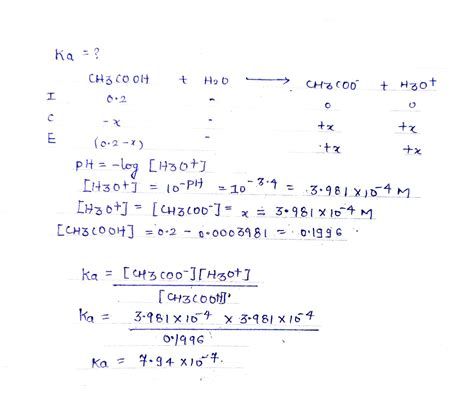 Ka = ?
CH3COOH + H2O ⟶ CH3COO⁻ + H3O⁺
I 0.2 - 0 0
C -x - +x +x
E (0.2-x) - +x +x
PH = -log [H3O+]
[H3O+] = 10^-PH = 10^-3.4 = 3.981 × 10^-4 M
[H3O+] = [CH3COO⁻] = x = 3.981 × 10^-4 M
[CH3COOH] = 0.2 - 0.0003981 = 0.1996
Ka = [CH3COO⁻][H3O+]
[CH3COOH]
Ka = 3.981 × 10^-4 × 3.981 × 10^-4
0.1996
Ka = 7.94 × 10^-7.